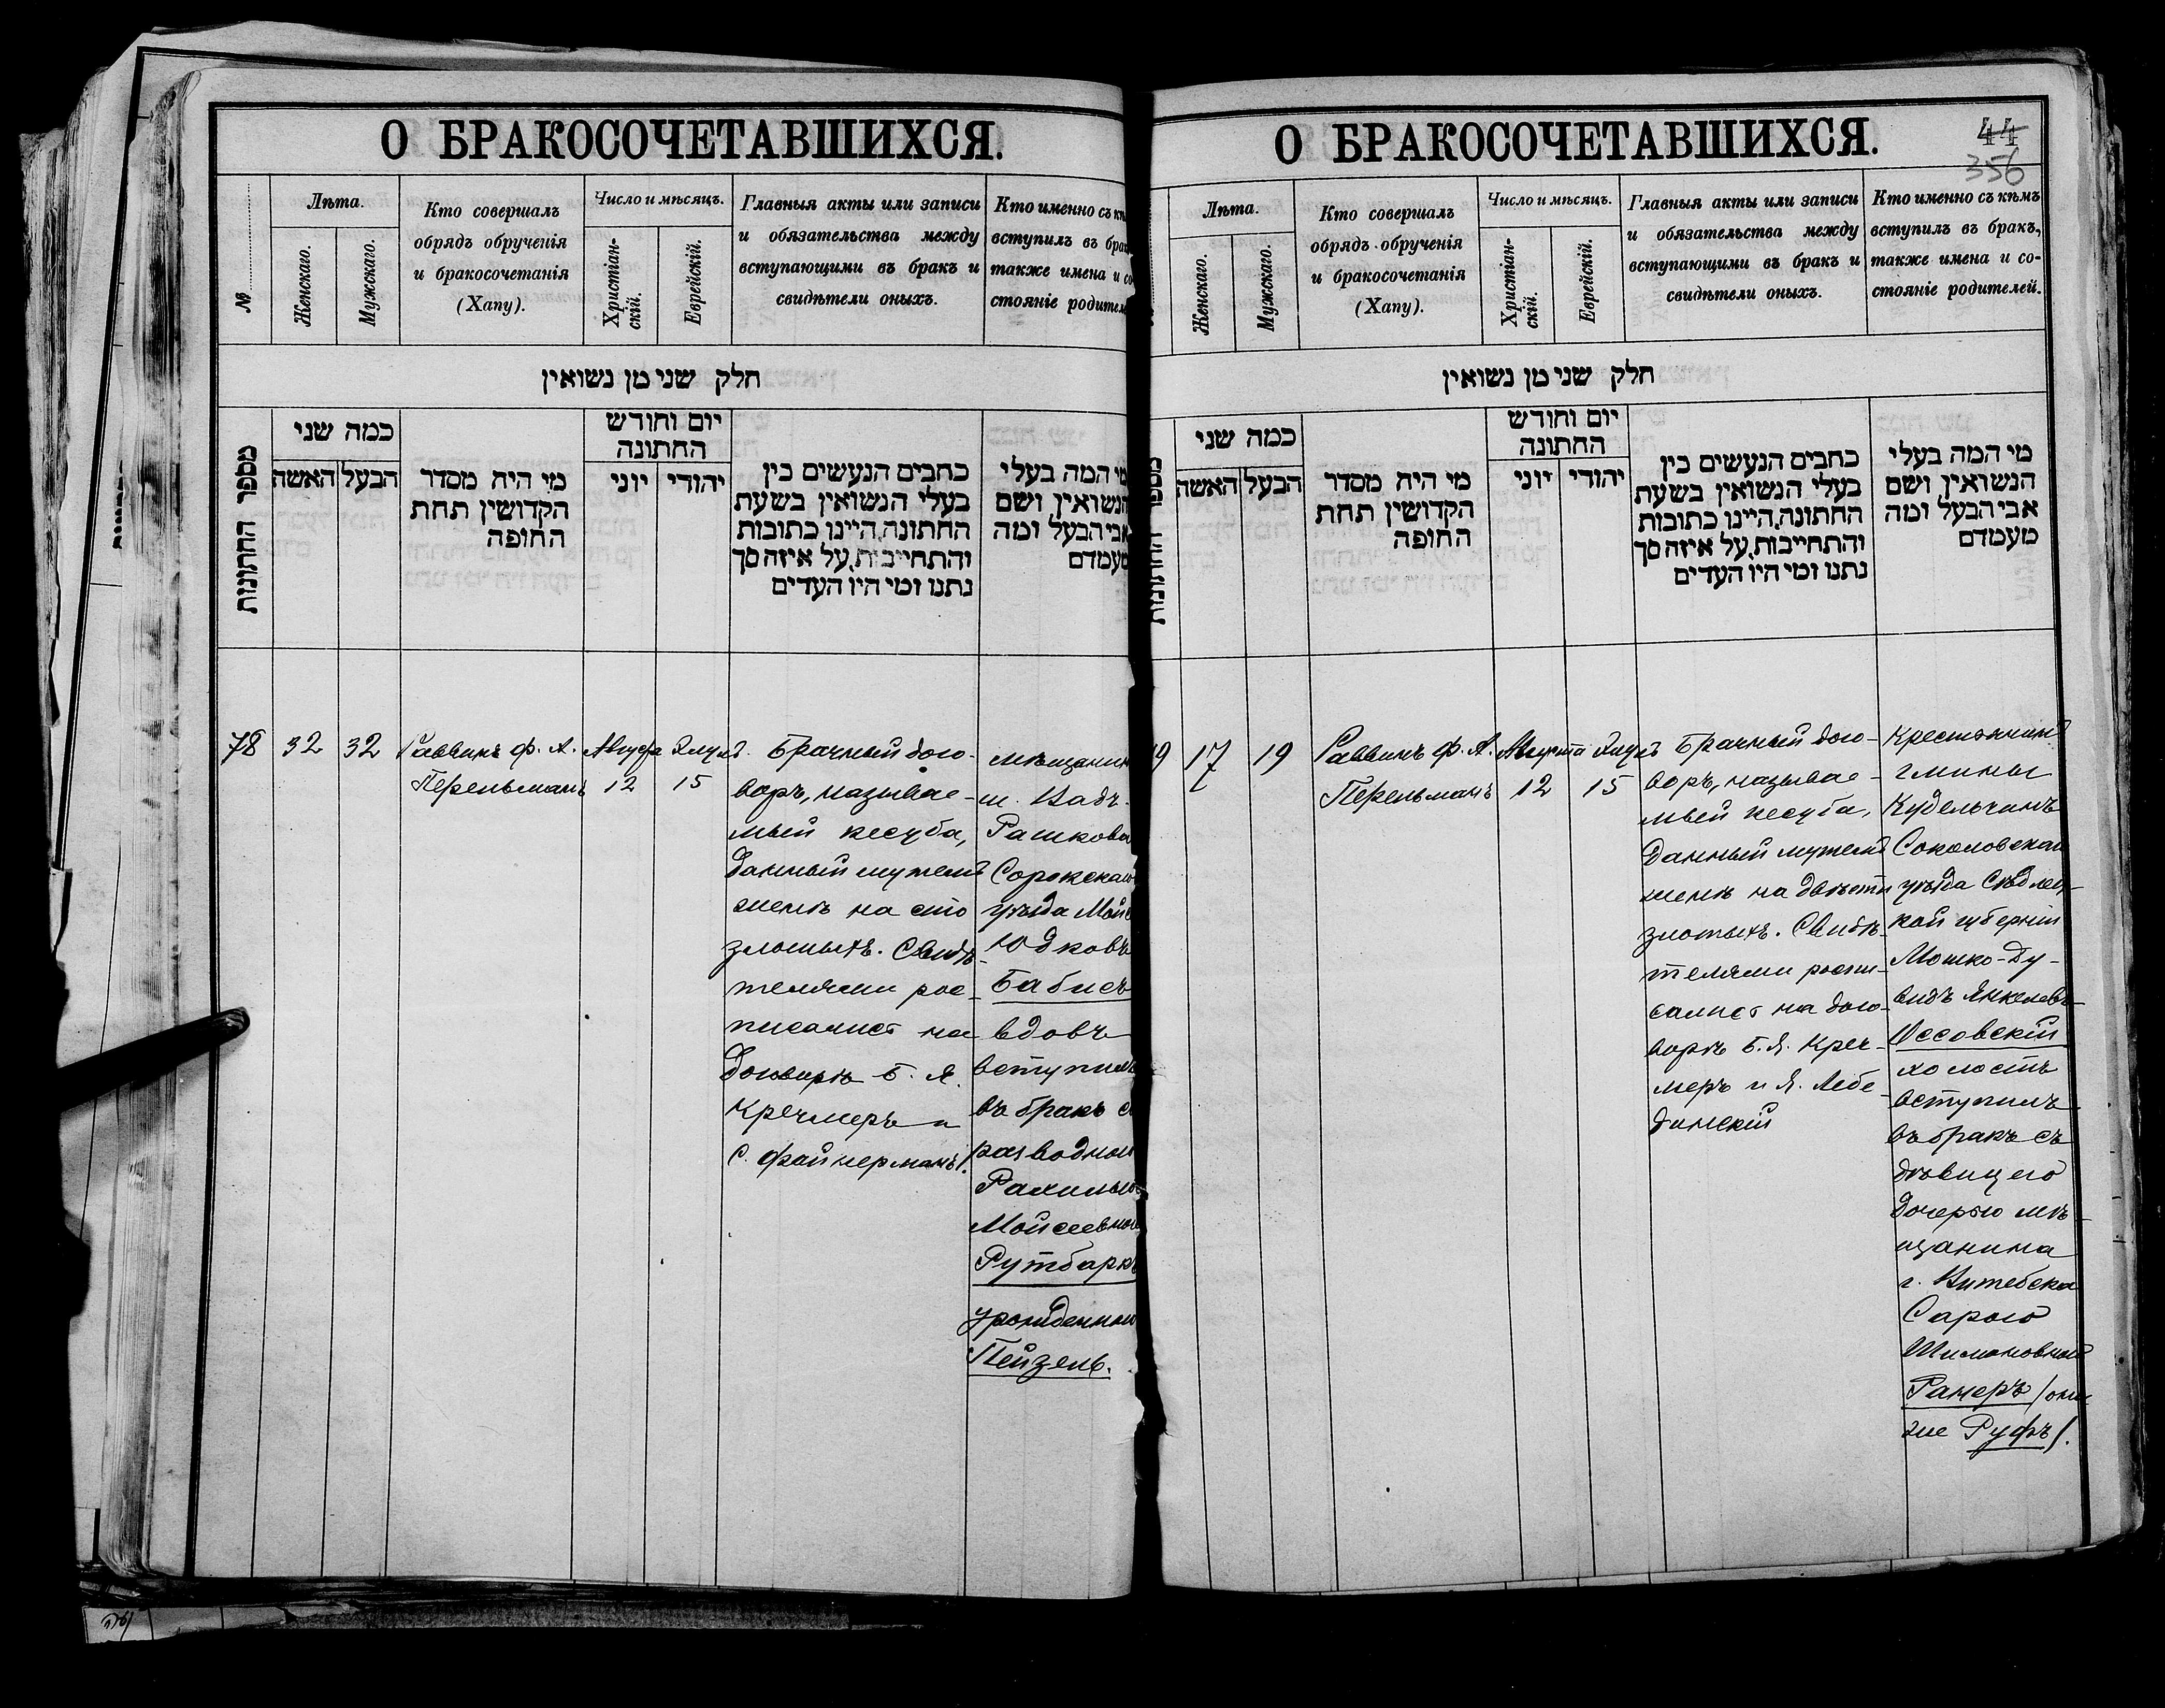 О БРАКОСОЧЕТАВШИХСЯ.
№
Лѣта.
Женскаго.
Мужскаго.
Кто совершалъ
обрядъ обрученія
и бракосочетанія
(Хапу).
Число и мѣсяцъ.
Христіан-
скій.
Еврейскій.
Главныя акты или записи
и обязательства между
вступающими въ бракъ и
свидѣтели оныхъ.
Кто именно съ
вступилъ въ
также имена и
стояніе
חלק שני מן נשואין
מספר החתונות
כמה שני
האשה
הבעל
מי היה מסדר
הקדושין תחת
החופה
יום וחודש
החתונה
יוני
יהודי
כתבים הנעשים בין
בעלי הנשואין בשעת
החתונה, היינו כתובות
והתחייבות, על איזה סך
נתנו ומי היו העדים
מי המה בעלי
הנשואין ושם
אבי הבעל ומה
מעמדם
78
32
32
Раввинъ Ф. А.
Перельманъ
Августа
12
Элулъ
15
Брачный дого-
воръ, называе-
мый кесуба,
данный мужемъ
женѣ на сто
злотыхъ. Свидѣ-
телями рос-
писались на
договорѣ Б. Я.
Кречмеръ и
С. Файнерманъ.
мѣщанин
м. Вадъ-
Рашкова
Сорокскаго
уѣзда
Юдковъ
Бабисъ
вдовъ
вступилъ
въ бракъ
разводною
Рахилью
Моисеевною
Рутбаркъ
урожденною
Пейзель.
О БРАКОСОЧЕТАВШИХСЯ.
44
356
Лѣта.
Женскаго.
Мужскаго.
Кто совершалъ
обрядъ обрученія
и бракосочетанія
(Хапу).
Число и мѣсяцъ.
Христіан-
скій.
Еврейскій.
Главныя акты или записи
и обязательства между
вступающими въ бракъ и
свидѣтели оныхъ.
Кто именно съ кѣмъ
вступилъ въ бракъ,
также имена и со-
стояніе родителей.
חלק שני מן נשואין
כמה שני
האשה
הבעל
מי היה מסדר
הקדושין תחת
החופה
יום וחודש
החתונה
יוני
יהודי
כתבים הנעשים בין
בעלי הנשואין בשעת
החתונה, היינו כתובות
והתחייבות, על איזה סך
נתנו ומי היו העדים
מי המה בעלי
הנשואין ושם
אבי הבעל ומה
מעמדם
9
17
19
Раввинъ Ф. А.
Перельманъ
Августа
12
Элулъ
15
Брачный дого-
воръ, называе-
мый кесуба,
данный мужемъ
женѣ на двѣсти
злотыхъ. Свидѣ-
телями роспи-
сались на дого-
ворѣ Б. Я. Креч-
меръ и Я. Лебе-
динскій
Крестьянинъ
гмины
Кудельчинъ
Соколовскаго
уѣзда Сѣдлец-
кой губерніи
Мошко-Ду-
видъ Янкелевъ
Оссовскій
холостъ
вступилъ
въ бракъ съ
дѣвицею
дочерью мѣ-
щанина
г. Витебска
Сарою
Шимоновной
Ранеръ (она
же Руфъ).